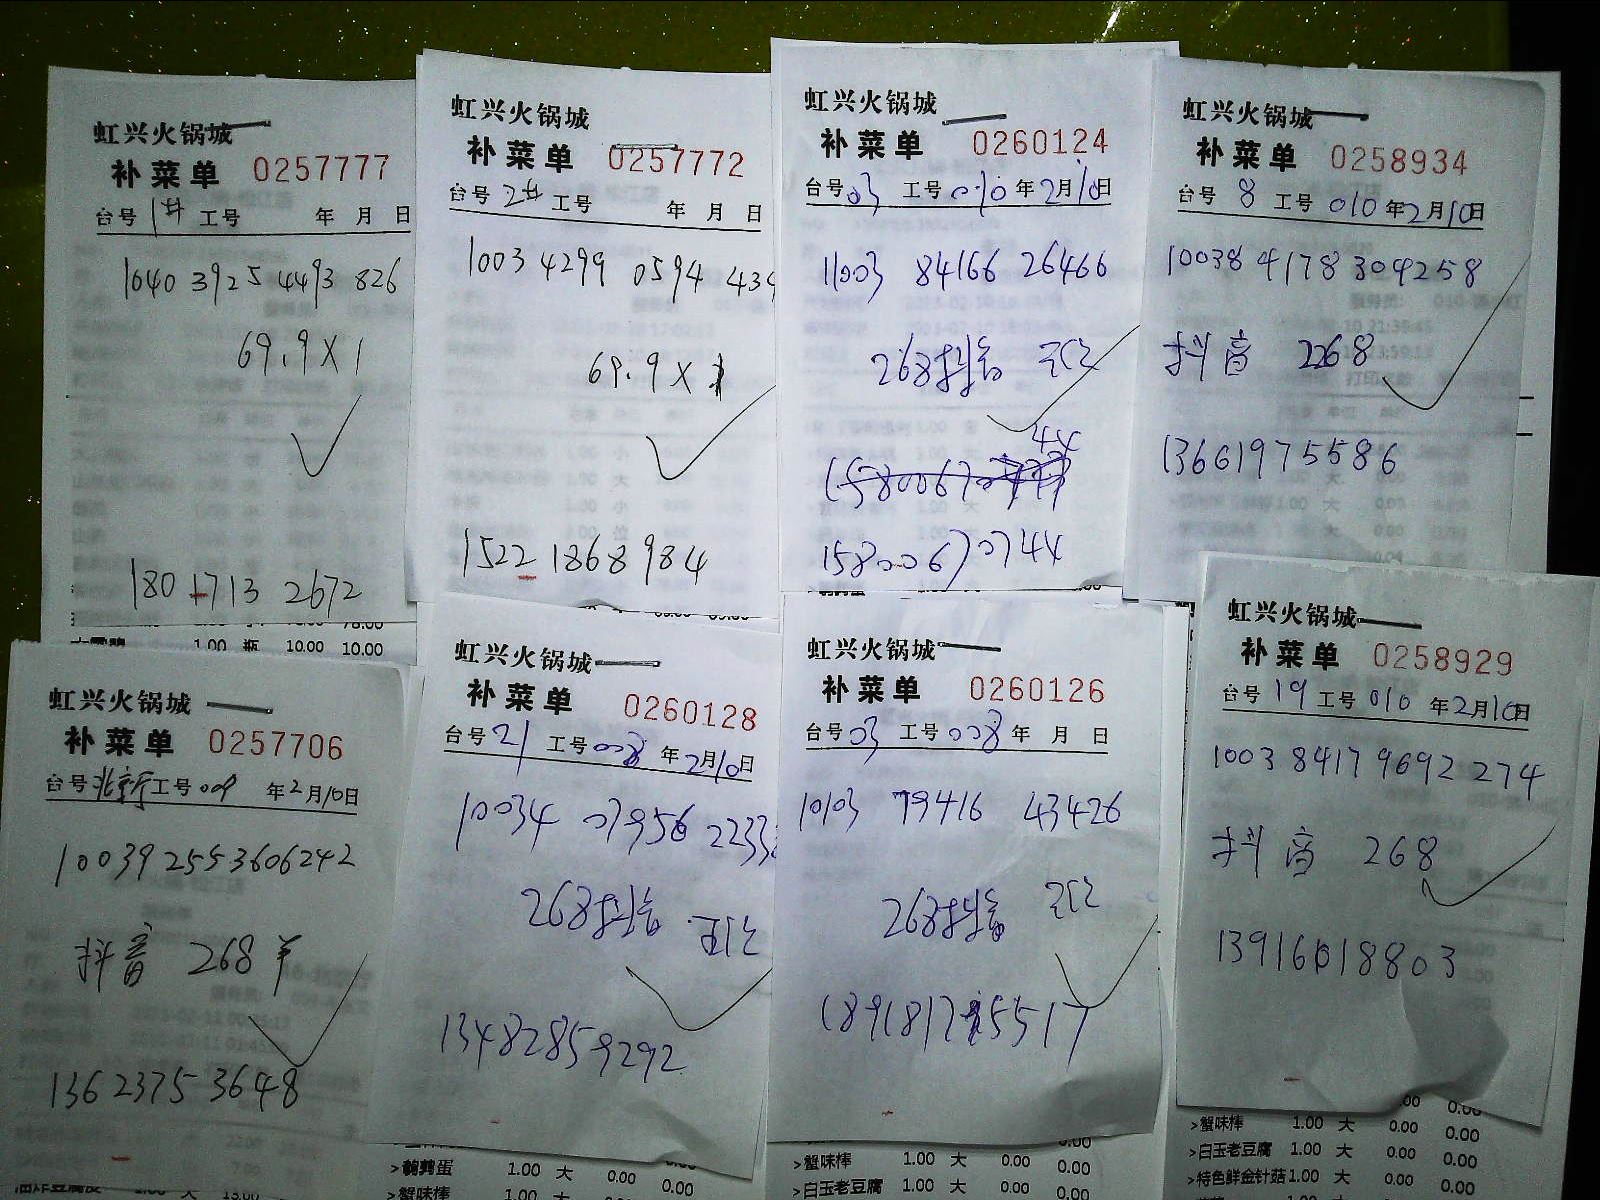 虹兴火锅城
补菜单 0257777
台号 1# 工号 年 月 日
1040 3925 4493 826
69.9 X 1
180 1713 2672
1.00 瓶 10.00 10.00
虹兴火锅城
补菜单 0257772
台号 2# 工号 年 月 日
1003 4299 0594 434
69.9 X 1
1522 1868 984
虹兴火锅城
补菜单 0260124
台号 03 工号 010 年 2月10日
11003 84166 26466
268抖音
44
15800670744
虹兴火锅城
补菜单 0258934
台号 8 工号 010 年2月10日
10038 4178 304258
抖音 268
13661975586
虹兴火锅城
补菜单 0257706
台号 北京厅 工号 009 年2月10日
100392553606242
抖音 268 ¥
13623753648
虹兴火锅城
补菜单 0260128
台号 21 工号 008 年2月10日
10034 07956 2233
268抖音
13482859292
>鹌鹑蛋 1.00 大 0.00 0.00
>蟹味棒 1.00 大 0.00 0.00
虹兴火锅城
补菜单 0260126
台号 03 工号 008 年 月 日
10103 79416 43426
268抖音
18918175517
>蟹味棒 1.00 大 0.00 0.00
>白玉老豆腐 1.00 大 0.00 0.00
虹兴火锅城
补菜单 0258929
台号 19 工号 010 年2月10日
1003 8417 9692 274
抖音 268
13916618803
>蟹味棒 1.00 大 0.00 0.00
>白玉老豆腐 1.00 大 0.00 0.00
>特色鲜金针菇 1.00 大 0.00 0.00